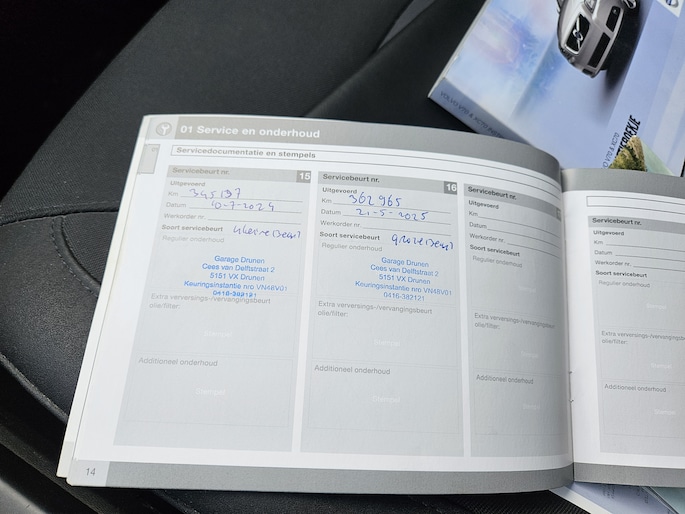 01 Service en onderhoud
Servicedocumentatie en stempels
Servicebeurt nr. 15
Uitgevoerd
Km 345197
Datum 10-7-2024
Werkorder nr.
Soort servicebeurt kleine Beurt
Regulier onderhoud
Garage Drunen
Cees van Delftstraat 2
5151 VX Drunen
Keuringsinstantie nro VN48V01
0416-382121
Extra verversings-/vervangingsbeurt
olie/filter:
Stempel
Additioneel onderhoud
Stempel
14
Servicebeurt nr. 16
Uitgevoerd
Km 362965
Datum 21-5-2025
Werkorder nr.
Soort servicebeurt grote Beurt
Regulier onderhoud
Garage Drunen
Cees van Delftstraat 2
5151 VX Drunen
Keuringsinstantie nro VN48V01
0416-382121
Extra verversings-/vervangingsbeurt
olie/filter:
Stempel
Additioneel onderhoud
Stempel
Servicebeurt nr.
Uitgevoerd
Km
Datum
Werkorder nr.
Soort servicebeurt
Regulier onderhoud
Stempel
Extra verversings-/vervangingsbeurt
olie/filter:
Stempel
Additioneel onderhoud
Stempel
Servicebeurt nr.
Uitgevoerd
Km
Datum
Werkorder nr.
Soort servicebeurt
Regulier onderhoud
Stempel
Extra verversings-/vervangings
olie/filter:
Stempel
Additioneel onderhoud
Stempel
VOLVO V70 & XC70